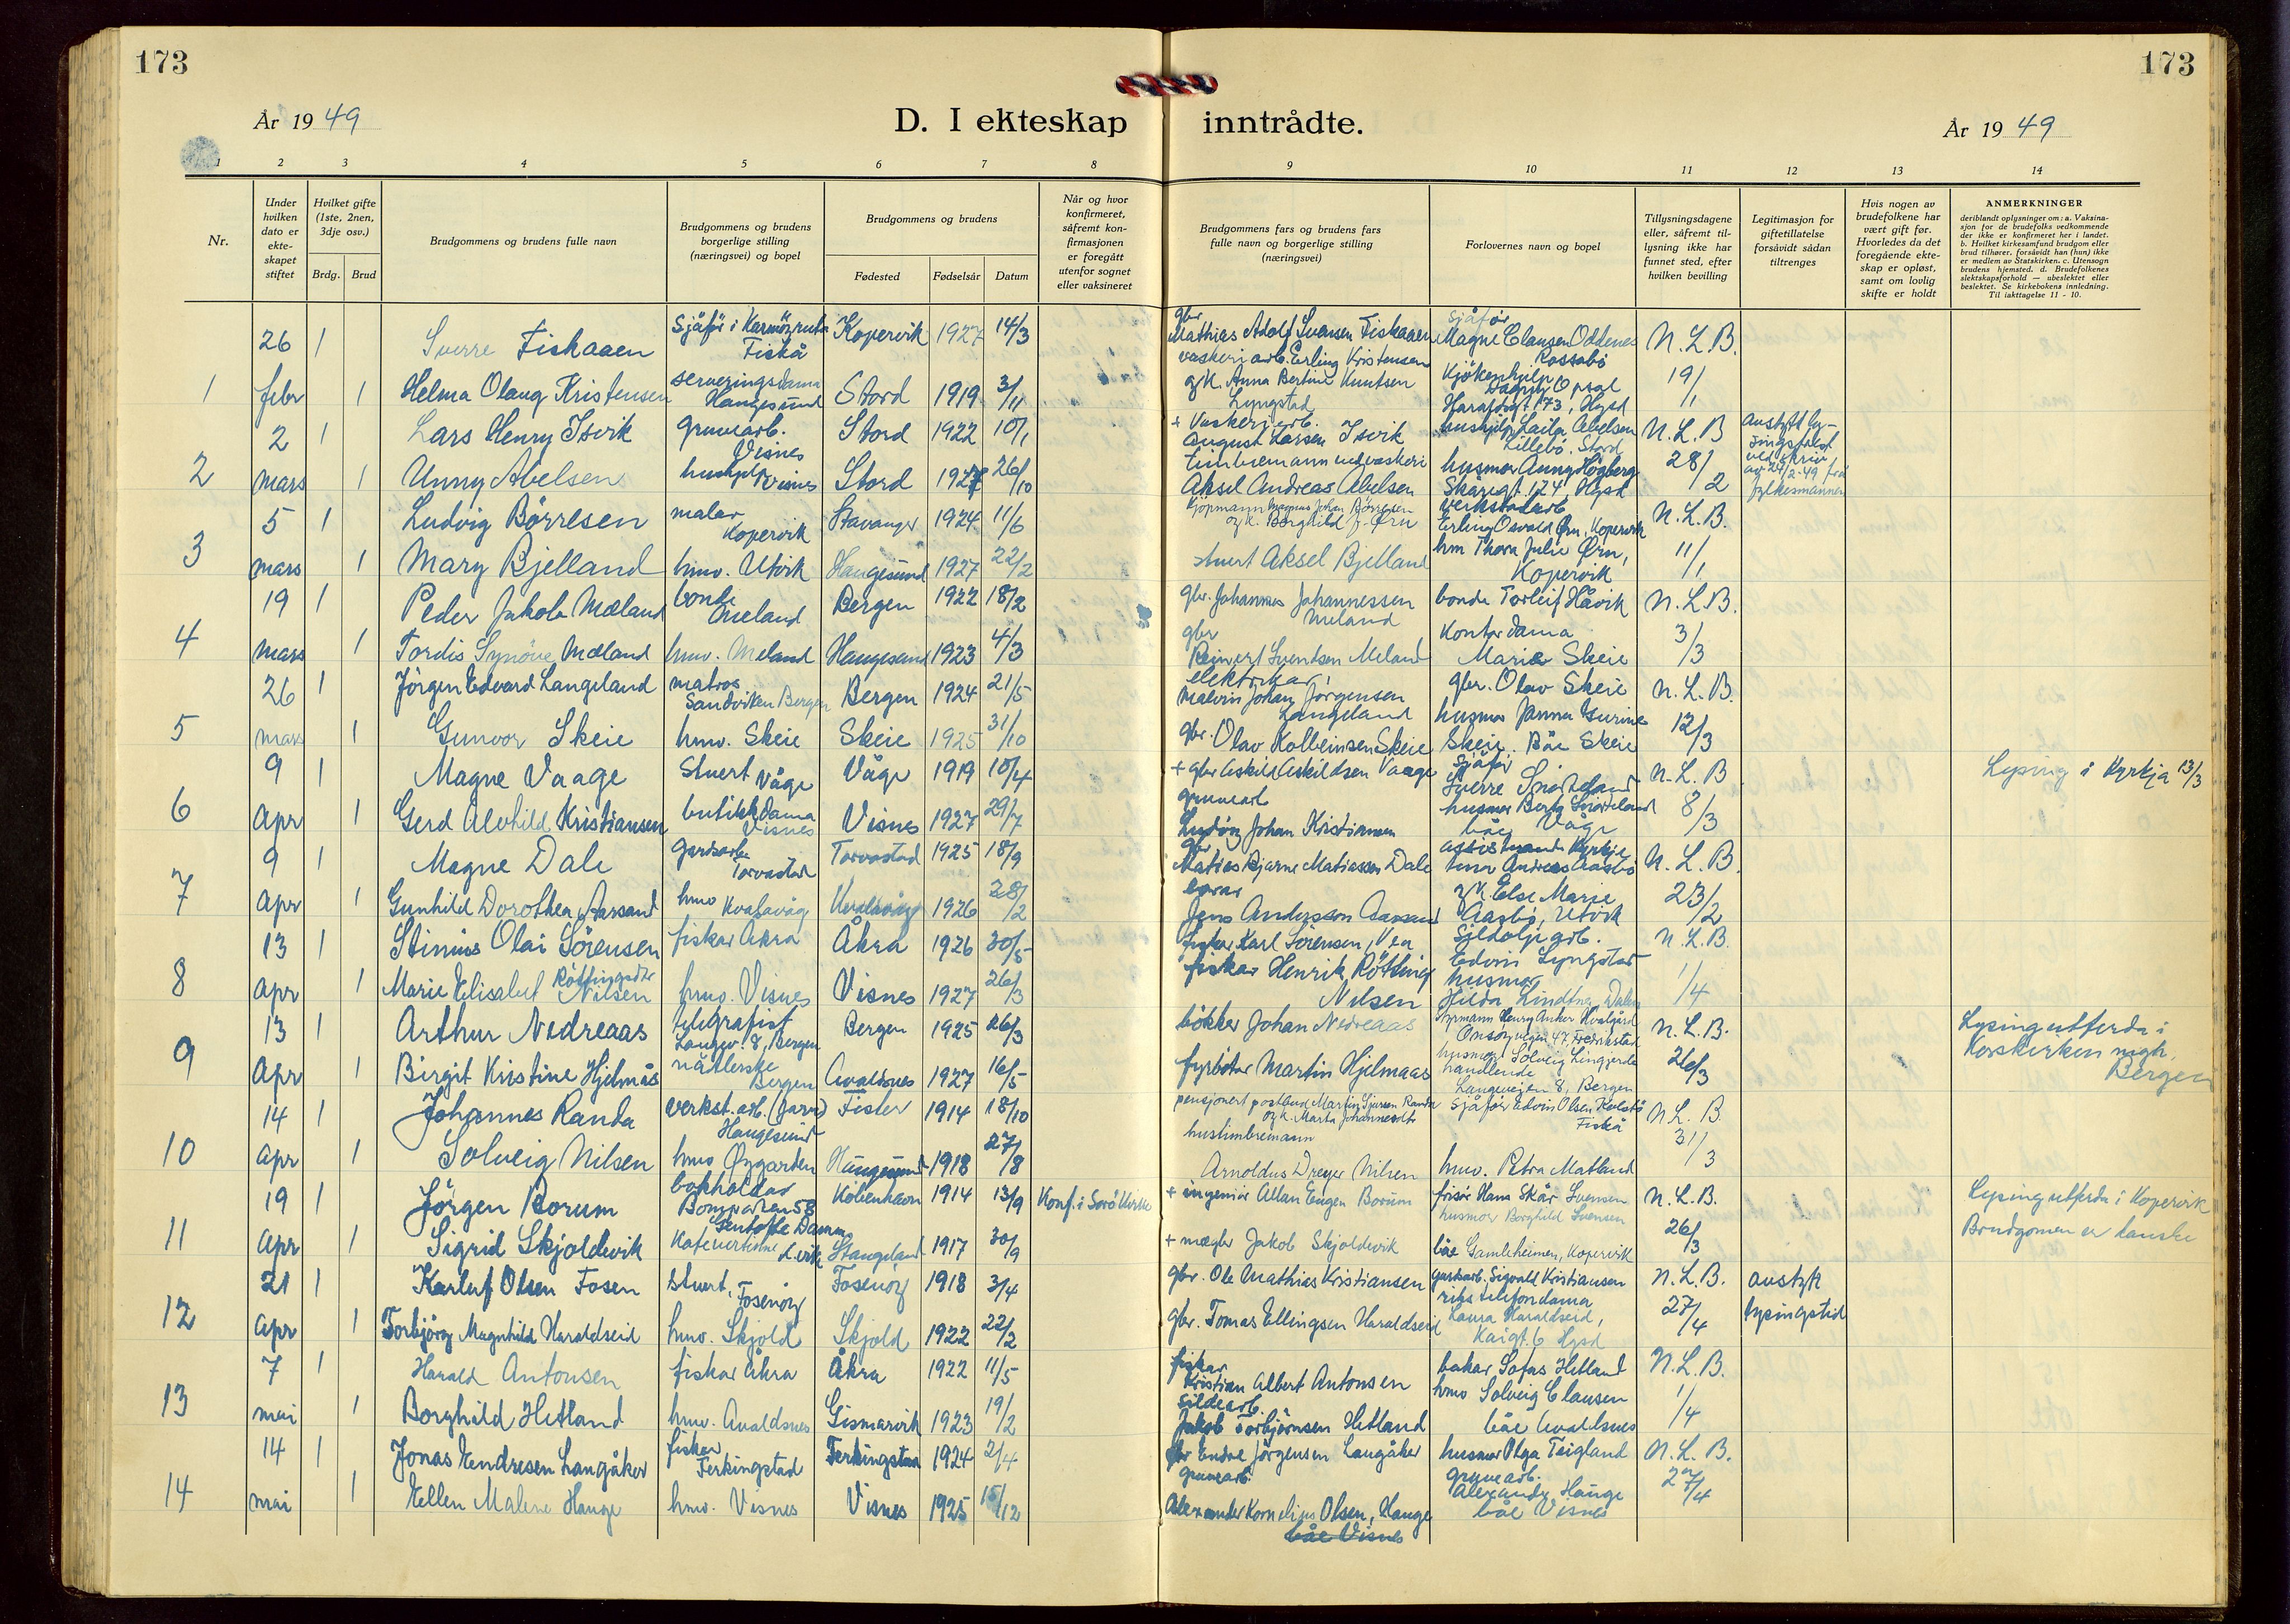 173
173
År 1949
D. I ekteskap inntrådte.
År 1949
1 2 3 4 5 6 7 8 9 10 11 12 13 14
Nr.
Under hvilken dato er ekte-skapet stiftet
Hvilket gifte (1ste, 2nen, 3dje osv.)
Brdg. Brud
Brudgommens og brudens fulle navn
Brudgommens og brudens borgerlige stilling (næringsvei) og bopel
Brudgommens og brudens
Fødested Fødselsår Datum
Når og hvor konfirmeret, såfremt kon-firmasjonen er foregått utenfor sognet eller vaksineret
Brudgommens fars og brudens fars fulle navn og borgerlige stilling (næringsvei)
Forlovernes navn og bopel
Tillysningsdagene eller, såfremt til-lysning ikke har funnet sted, efter hvilken bevilling
Legitimasjon for giftetillatelse forsåvidt sådan tiltrenges
Hvis nogen av brudefolkene har vært gift før. Hvorledes da det foregående ekte-skap er opløst, samt om lovlig skifte er holdt
ANMERKNINGER
deriblandt oplysninger om: a. Vaksina-sjon for de brudefolks vedkommende der ikke er konfirmeret her i landet. b. Hvilket kirkesamfund brudgom eller brud tilhører, forsåvidt han (hun) ikke er medlem av Statskirken. c. Utensogn brudens hjemsted. d. Brudefolkenes slektskapsforhold — ubeslektet eller beslektet. Se kirkebokens innledning. Til iakttagelse 11 - 10.
26 1 Sverre Fiskaaen Sjåfør i Karmøyruta Fiskå Kopervik 1927 14/3 gbr Mathias Adolf Svensen Fiskaaen Sjåfør Magne Clausen Oddenes Kossabø N.L.B.
1 febr 1 Helma Olaug Kristensen serveringsdama Haugesund Stord 1919 3/11 vaskeriarb. Erling Kristensen og k. Anna Bertine Knutsen Lyngstad Kjøkenhjelp Dagny Opsal Haraldsgt. 173, Hgsd 19/1
2 1 Lars Henry Isvik gruvearb. Visnes Stord 1922 10/1 + Vaskeriarb. August Larsen Isvik hushjelp Laila Abelsen Lillebø. Stord N.L.B avstytt ly-
2 mars 1 Unny Abelsen hushjelp Visnes Stord 1927 26/10 timbremann ved vaskeri Aksel Andreas Abelsen husmor Aunny Høgberg Skåregt. 124, Hgsd 28/2 singsfrist ved skriv av 24/2-49 frå fylkesmannen
5 1 Ludvig Børresen malar Kopervik Stavanger 1924 11/6 Kjøpmann Magnus Johan Børresen og k. Borghild f. Ørn verkstadarb Erling Osvald Ørn, Kopervik N.L.B.
3 mars 1 Mary Bjelland hmv. Utvik Haugesund 1927 22/2 stuert Aksel Bjelland hm Thora Julie Ørn, Kopervik 11/1
19 1 Peder Jakob Mæland bonde Meland Bergen 1922 18/2 gbr. Johannes Johannessen Meland bonde Torleif Håvik N.L.B.
4 mars 1 Tordis Synøve Mæland hmv. Meland Haugesund 1923 4/3 gbr Reinert Svendsen Meland Kontordama Marie Skeie 3/3
26 1 Jørgen Edvard Langeland matros Sandviken Bergen Bergen 1924 21/5 elektrikar Malvin Johan Jørgensen Langeland gbr. Olav Skeie N.L.B.
5 mars 1 Gunvor Skeie hmv. Skeie Skeie 1925 31/10 gbr. Olav Kolbeinsen Skeie husmor Janna Gurine Skeie. Båe Skeie 12/3
9 1 Magne Vaage Stuert Våge Våge 1919 10/4 + gbr Askild Askildsen Vaage Sjåfør Sverre Snørteland N.L.B Lysing i Kyrkja 13/3
6 Apr 1 Gerd Alvhild Kristiansen butikkdama Visnes Visnes 1927 29/7 gruvearb Ludvig Johan Kristiansen husmor Berta Snørteland båe Våge 8/3
9 1 Magne Dale gardsarb. Torvastad Torvastad 1925 18/9 gbr Matias Bjarne Matiassen Dale assistent Kyrkje tenar Andreas Aasbø N.L.B.
7 Apr 1 Gunhild Dorothea Aarsand hmv Kvalavåg Kvalavåg 1926 28/2 Jens Andersson Aarsand og k. Else Marie Aasbø, Utvik 23/2
13 1 Stinius Olai Sørensen fiskar Åkra Åkra 1926 30/5 fiskar Karl Sörensen, Vea Sildoljearb. Edvin Lyngstad N.L.B.
8 apr 1 Marie Elisabet Røttingsdtr Nilsen hmv. Visnes Visnes 1927 26/3 fiskar Henrik Røtting Nilsen husmor Hilda Lindtner Dalen 1/4
13 1 Arthur Nedreaas telegrafist Langev. 8, Bergen Bergen 1925 26/3 bøkker Johan Nedreaas Styrmann Henry Anker Hvalgård Onsøyvegen 47, Fredrikstad N.L.B. Lysing utferda i
9 Apr 1 Birgit Kristine Hjelmås nätlerske Bergen Avaldsnes 1927 16/5 fyrbøtar Martin Hjelmaas husmor Solveig Lingjerde handlende Langeveien 8, Bergen 26/3 Korskirken mgh, Bergen
14 1 Johannes Randa verkst.arb. (Jarn) Haugesund Fister 1914 18/10 pensjonert postbud Martin Sjursen Randa og k. Marta Johannesdtr Sjåfør Edvin Olsen Kolstø Fiskå N.L.B.
10 apr 1 Solveig Nilsen hmv Øygarden Haugesund 1918 27/8 hustimbremann Arnoldus Dreyer Nilsen hmv. Petra Matland 31/3
19 1 Jørgen Borum bokholdar Bomparken 58 Gentofte Danm. København 1914 13/9 Konf. i Sorø Kirke + ingeniør Allan Eugen Borum frisør Hans Skår Svensen N.L.B. Lysing utferda i Kopervik
11 Apr 1 Sigrid Skjoldevik Kafévertinne Stangeland 1917 30/9 + mægler Jakob Skjoldevik husmor Borghild Svensen båe Gamleheimen, Kopervik 26/3 Brudgomen er danske
21 1 Karluf Olsen Fosen Stuert, Fosenøy Fosenøy 1918 3/4 gbr. Ole Mathias Kristiansen gardsarb. Sigvald Kristiansen N.L.B. avstytt
12 apr 1 Torbjørg Magnhild Haraldseid hmv. Skjold Skjold 1922 22/2 gbr. Tomas Ellingsen Haraldseid rikstelefondama Laura Haraldseid, Kaigt. 6 Hgsd 27/4 lysingstid
7 1 Harald Antonsen fiskar Åkra Åkra 1922 11/5 fiskar Kristian Albert Antonsen bakar Sofus Hetland N.L.B.
13 mai 1 Borghild Hetland hmv. Avaldsnes Gismarvik 1923 19/2 Sildearb. Jakob Torbjørnsen Hetland hmv Solveig Clausen båe Avaldsnes 1/4
14 1 Jonas Endresen Langåker fiskar Ferkingstad Ferkingstad 1924 2/4 gbr Endre Jørgensen Langåker husmor Olga Teigland N.L.B.
14 mai 1 Ellen Malene Hauge hmv. Visnes Visnes 1925 15/12 gruvearb Alexander Kornelius Olsen, Hauge båe Visnes gruvearb. Alexander Hauge båe Visnes 27/4